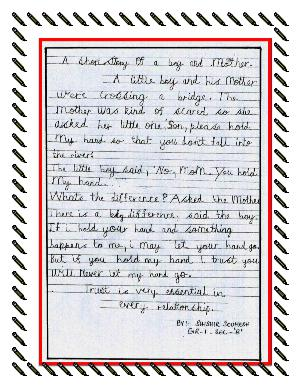 A short story Of a boy and Mother.
A little boy and his Mother
were crossing a bridge. The
Mother was kind of scared so she
asked her little one Son, please hold
My hand so that you don't fall into
the river.
The little boy said, No, Mom. You hold
My hand...
Whats the difference? Asked the Mother
There is a big difference. said the boy.
If i hold your hand and something
happens to me, i may let your hand go.
But if you hold my hand, I trust you
Will Never let my hand go.
Trust is very essential in
every relationship.
BY:-
GR-1 SEC-'B'